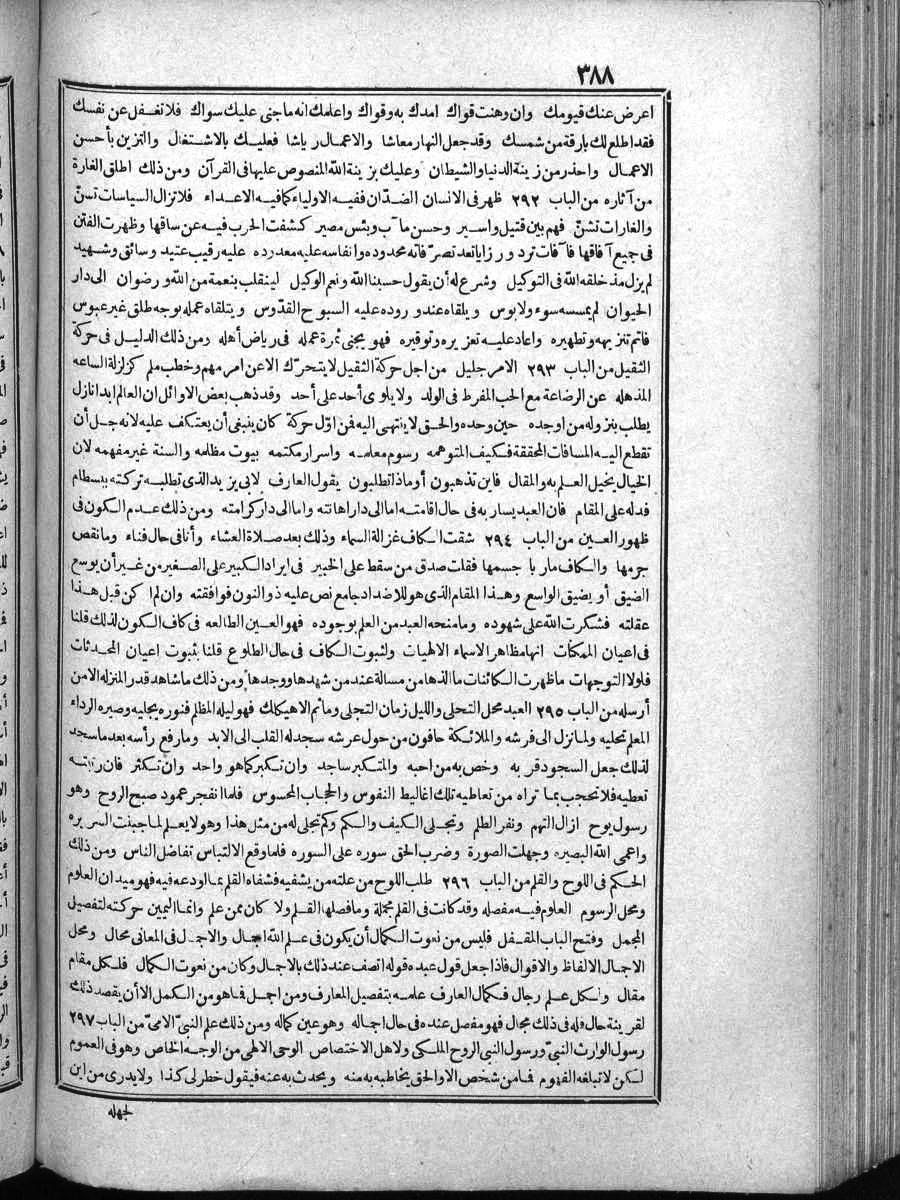 ٣٨٨
اعرض عنك قيومك وان وهنت قواك امدك به وقواك واعلمك انه ماجنى عليك سواك فلا تغفل عن نفسك
فقد اطلع لك بارقة من شمسك وقد جعل النهار معاشا والاعمال رياشا فعليك بالاشتغال والتزين بأحسن
الاعمال واحذر من زينة الدنيا والشيطان وعليك بزينة الله المنصوص عليها فى القرآن ومن ذلك اطلق الغارة
من آثاره من الباب ٢٩٢ ظهر فى الانسان الضدّان ففيه الاولياء كما فيه الاعداء فلا تزال السياسات تسنّ
والغارات تشنّ فهم بين قتيل واسير وحسن مآب وبئس مصير كشفت الحرب فيه عن ساقها وظهرت الفتن
فى جميع آفاقها فآفات ترد ورزايا تعد تصرّفاته محدوده وانفاسه عليه معدوده عليه رقيب عتيد وسائق وشهيد
لم يزل مذ خلقه الله فى التوكيل وشرع له أن يقول حسبنا الله ونعم الوكيل لينقلب بنعمة من الله ورضوان الى دار
الحيوان لم يمسسه سوء ولا بوس ويلقاه عند وروده عليه السبوح القدّوس ويتلقاه عمله بوجه طلق غير عبوس
فاتم تنزيهه وتطهيره واعاد عليه تعزيره وتوقيره فهو يجنى ثمرة عمله فى رياض أهله ومن ذلك الدليل فى حركة
الثقيل من الباب ٢٩٣ الامر جليل من اجل حركة الثقيل لا يتحرّك الا عن امر مهم وخطب ملم كزلزلة الساعه
المذهله عن الرضاعة مع الحب المفرط فى الولد ولا يلوى أحد على أحد وقد ذهب بعض الاوائل ان العالم ابدا نازل
يطلب بنزوله من اوجده حين وحده والحق لا ينتهى اليه فمن اوّل حركة كان ينبغى أن يعتكف عليه لانه جل أن
تقطع اليه المسافات المحققة فكيف المتوهمه رسوم معلمه واسرار مكتمه بيوت مظلمه والسنة غير مفهمه لان
الخيال يخيل العلم به والمقال فاين تذهبون أو ماذا تطلبون يقول العارف لابى يزيد الذى تطلبه تركته ببسطام
فدله على المقام فان العبد يسار به فى حال اقامته اما الى دار اهانته واما الى دار كرامته ومن ذلك عدم الكون فى
ظهور العين من الباب ٢٩٤ شقت الكاف غزالة السماء وذلك بعد صلاة العشاء وأنا فى حال فناء وما نقص
جرمها والكاف ما ربا جسمها فقلت صدق من سقط على الخبير فى ايراد الكبير على الصغير من غير أن يوسع
الضيق أو يضيق الواسع وهذا المقام الذى هو للاضداد جامع نص عليه ذو النون فوافقته وان لم اكن قبل هذا
عقلته فشكرت الله على شهوده وما منحه العبد من العلم بوجوده فهو العين الطالعه فى كاف الكون لذلك قلنا
فى اعيان الممكنات انها مظاهر الاسماء الالهيات ولثبوت الكاف فى حال الطلوع قلنا بثبوت اعيان المحدثات
فلولا التوجهات ما ظهرت الكائنات ما الذها من مسالة عند من شهدها ووجدها ومن ذلك ما شاهد قدر المنزله الا من
أرسله من الباب ٢٩٥ العبد محل التجلى والليل زمان التجلى وما ثم الا هيكلك فهو ليله المظلم فنوره بجليه وصيره الرداء
المعلم تجليه ولما نزل الى فرشه والملائكة حافون من حول عرشه سجد له القلب الى الابد وما رفع رأسه بعد ما سجد
لذلك جعل السجود قربه وخص به من احبه والمتكبر ساجد وان تكبر كما هو واحد وان تكثر فان رتبته
تعطيه فلا تحجب بما تراه من تعاطيه تلك اغاليط النفوس والحجاب المحسوس فلما انفجر عمود صبح الروح وهو
رسول يوح ازال التهم ونفر الظلم وتجلى الكيف والكم وكم تجلى له من مثل هذا وهو لا يعلم لما جبنت السريره
واعمى الله البصيره وجهلت الصورة وضرب الحق سوره على السوره فلما وقع الالتباس تفاضل الناس ومن ذلك
الحكم فى اللوح والقلم من الباب ٢٩٦ طلب اللوح من علته من يشفيه فشفاه القلم بما اودعه فيه فهو ميدان العلوم
ومحل الرسوم العلوم فيه مفصله وقد كانت فى القلم مجملة وما فصلها القلم ولا كان ممن علم وانما اليمين حركته لتفصيل
المجمل وفتح الباب المقفل فليس من نعوت الكمال أن يكون فى علم الله اجمال والاجمال فى المعانى محال ومحل
الاجمال الالفاظ والاقوال فاذا جعل قول عبده قوله اتصف عند ذلك بالاجمال وكان من نعوت الكمال فلكل مقام
مقال ولكل علم رجال فكمال العارف علمه بتفصيل المعارف ومن اجمل فما هو من الكمل الا أن يقصد ذلك
لقرينة حال فله فى ذلك مجال فهو مفصل عنده فى حال اجماله وهو عين كماله ومن ذلك علم النبىّ الامىّ من الباب ٢٩٧
رسول الوارث النبىّ ورسول النبى الروح الملكى ولاهل الاختصاص الوحى الالهى من الوجه الخاص وهو فى العموم
لكن لا تبلغه الفهوم فما من شخص الا والحق يخاطبه به منه ويحدث به عنه فيقول خطر لى كذا ولا يدرى من اين
لجهله